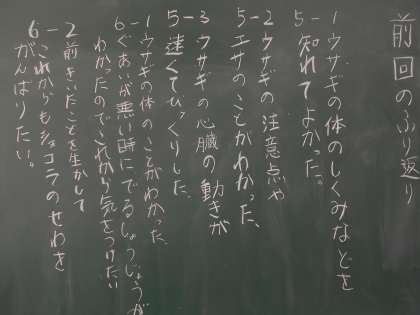 前回のふり返り
5-1 ウサギの体のしくみなどを
知れてよかった。
5-2 ウサギの注意点や
エサのことがわかった、
5-3 ウサギの心臓の動きが
速くてびっくりした、
6-1 ウサギの体のことがわかった、
ぐあいが悪い時にでるしょうじょうが
わかったのでこれから気をつけたい
6-2 前きいたことを生かして
これからもショコラのせわを
がんばりたい。